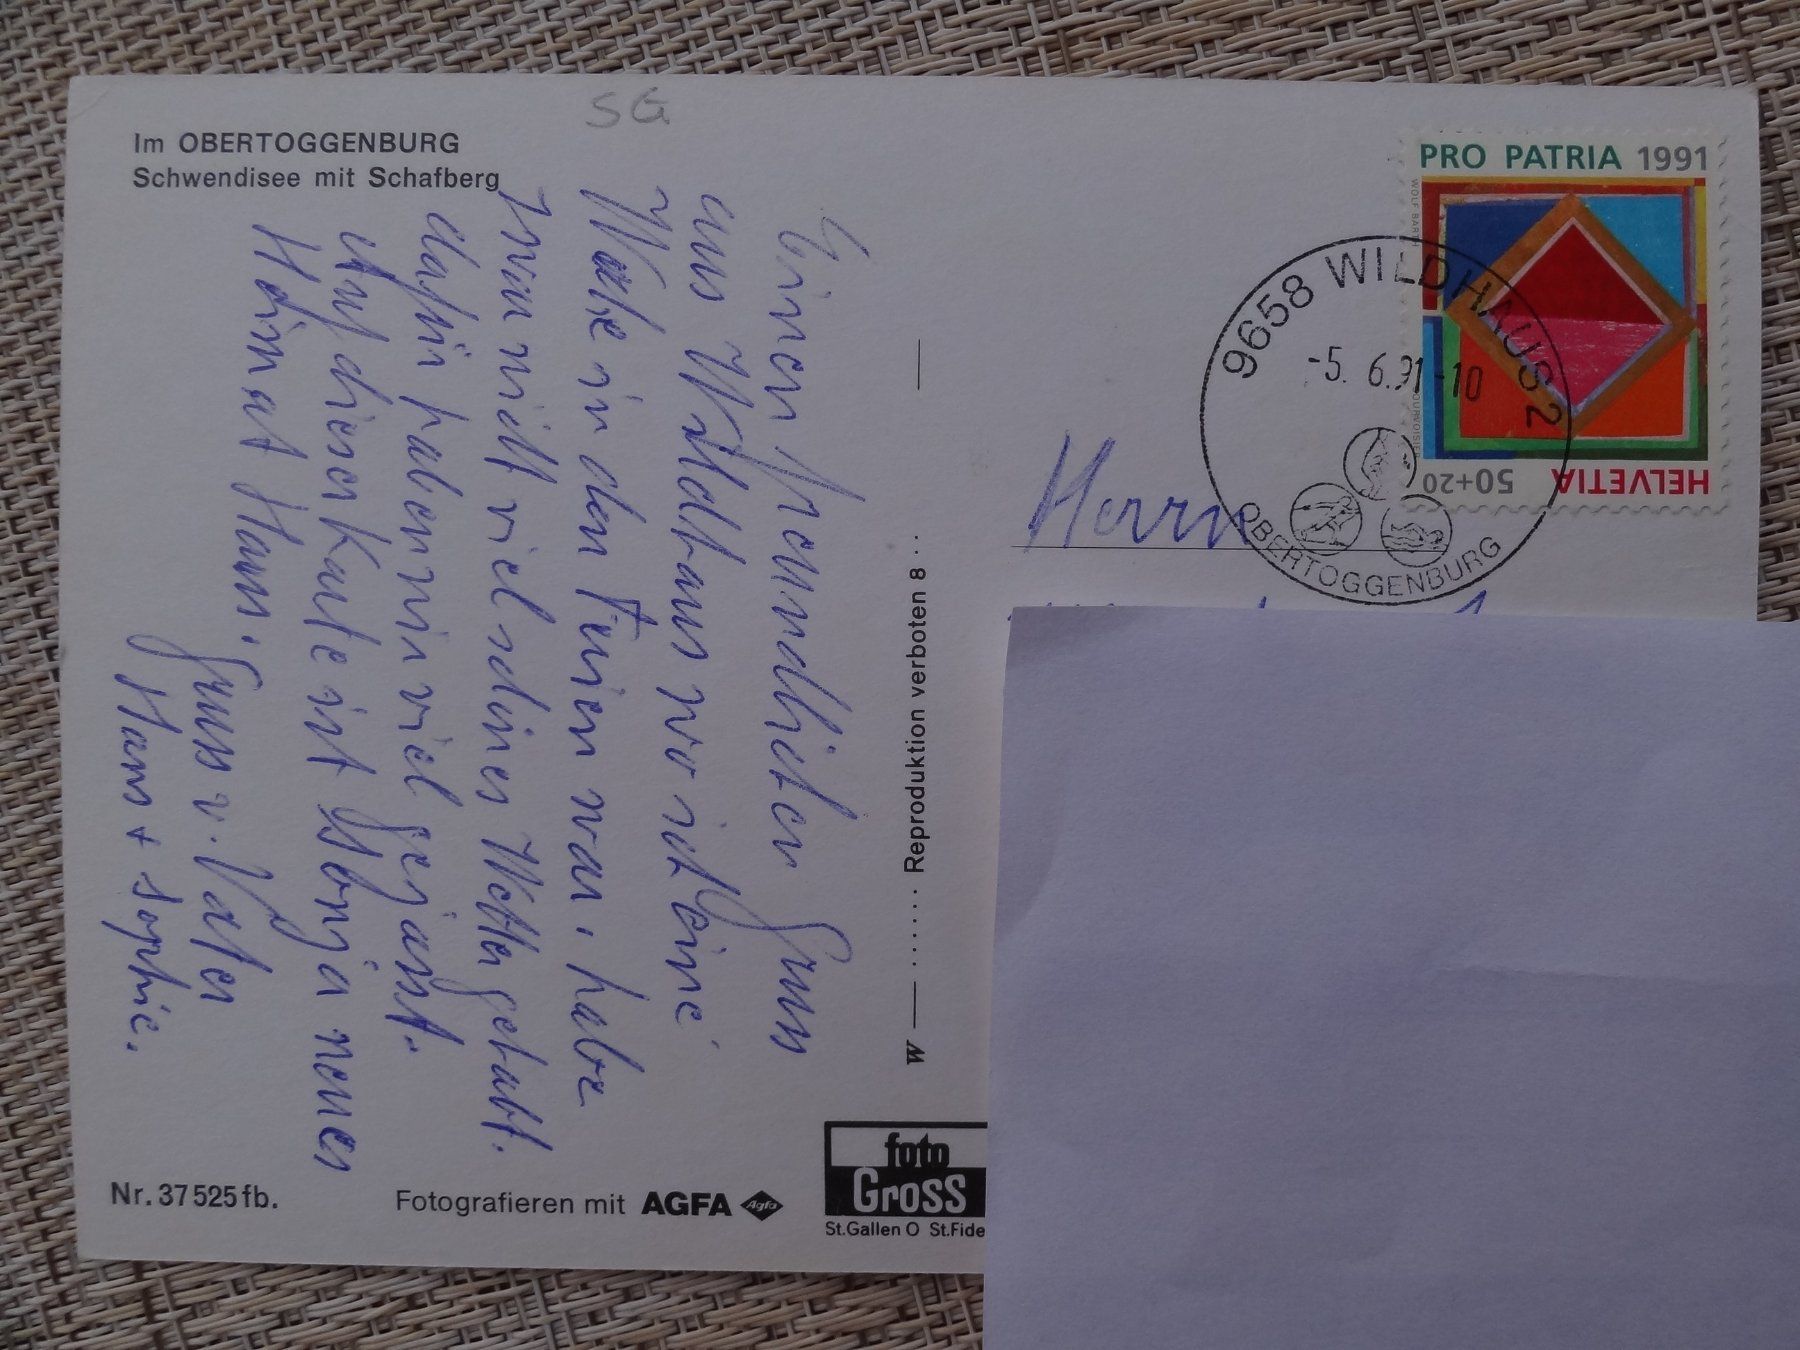 SG
Im OBERTOGGENBURG
Schwendisee mit Schafberg
Einen freundlichen Gruss
aus Wildhaus wo ich eine
Woche in den Ferien war, habe
zwar nicht viel schönes Wetter gehabt.
dafür haben wir viel gejasst.
Auf dieser Karte ist Sonja neues
Heimat Haus.
Gruss v. Vater
Hans + Sophie.
Nr. 37525 fb.
Fotografieren mit AGFA Agfa
foto
Gross
St.Gallen O St.Fide
W Reproduktion verboten 8
PRO PATRIA 1991
HELVETIA 50+20
9658 WILDHAUS 2
-5. 6.91-10
OBERTOGGENBURG
Herrn